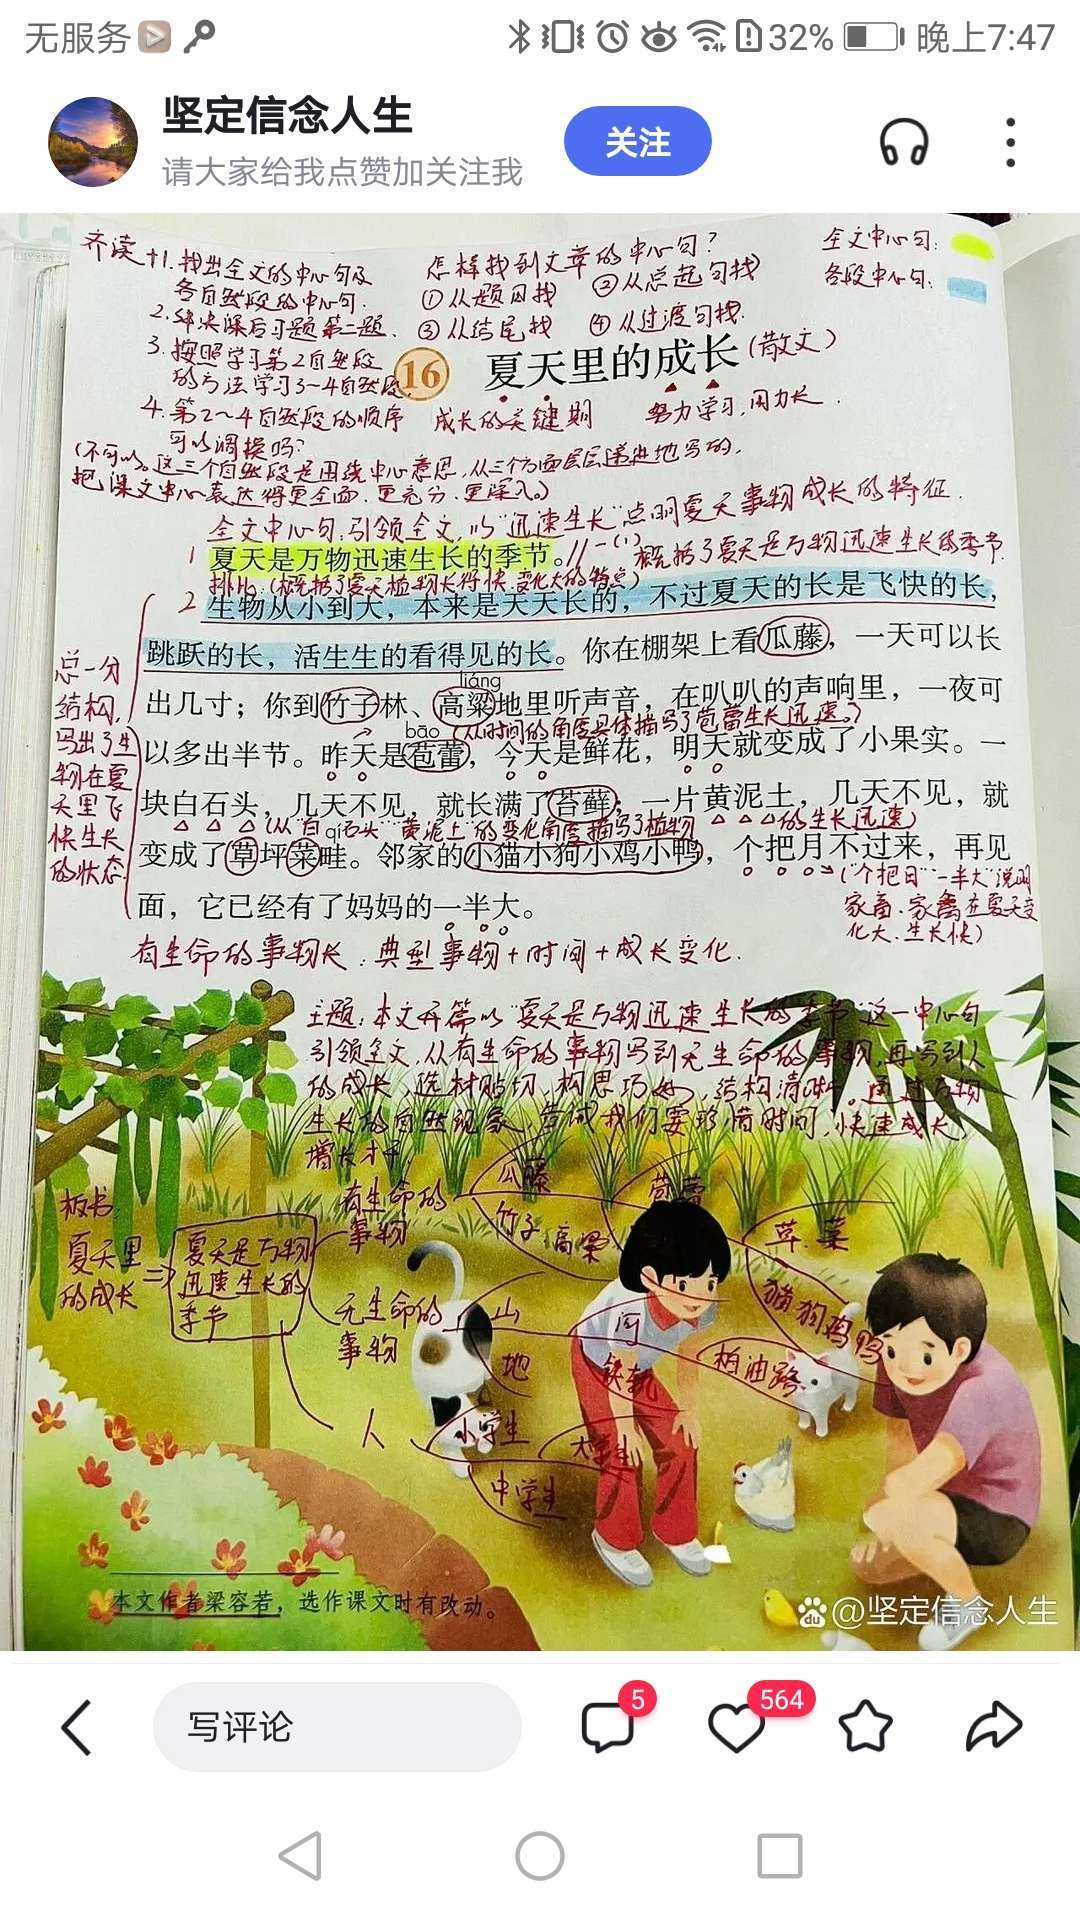 无服务
32%
晚上7:47
坚定信念人生
请大家给我点赞加关注我
关注
齐读+1.找出全文的中心句及
各自然段的中心句.
2.解决课后习题第二题.
3.按照学习第2自然段
的方法学习3~4自然段.
4.第2~4自然段的顺序
可以调换吗?
(不可以。这三个自然段是围绕中心意思,从三个方面层层递进地写的,
把课文中心表达得更全面.更充分.更深入。)
怎样找到文章的中心句?
①从题目找 ②从总起句找
③从结尾找 ④从过渡句找.
全文中心句:
各段中心句:
16 夏天里的成长(散文)
成长的关键期 努力学习,用力长.
全文中心句:引领全文,以“迅速生长”点明夏天事物成长的特征.
1 夏天是万物迅速生长的季节。//一(1)概括了夏天是万物迅速生长的季节.
排比:(概括了夏天植物长得快.变化大的特点)
2 生物从小到大,本来是天天长的,不过夏天的长是飞快的长,
跳跃的长,活生生的看得见的长。你在棚架上看瓜藤,一天可以长
liáng
出几寸;你到竹子林、高粱地里听声音,在叭叭的声响里,一夜可
bāo (从时间的角度具体描写了苞蕾生长迅速。)
以多出半节。昨天是苞蕾,今天是鲜花,明天就变成了小果实。一
块白石头,几天不见,就长满了苔藓;一片黄泥土,几天不见,就
(从“白石头”“黄泥土”的变化角度描写了植物的生长迅速)
qí
变成了草坪菜畦。邻家的小猫小狗小鸡小鸭,个把月不过来,再见
面,它已经有了妈妈的一半大。
(“个把月”“一半大”说明
家畜.家禽在夏天变
化大.生长快)
总一分
结构,
写出了生
物在夏
天里飞
快生长
的状态
有生命的事物长:典型事物+时间+成长变化.
主题:本文开篇以“夏天是万物迅速生长的季节”这一中心句
引领全文,从有生命的事物写到无生命的事物,再写到人
的成长,选材贴切,构思巧妙,结构清晰。通过万物
生长的自然现象,告诫我们要珍惜时间,快速成长,
增长才干.
板书:
夏天里
的成长
夏天是万物
迅速生长的
季节
有生命的
事物
瓜藤
竹子 高粱
苞蕾
草.菜
猫狗鸡鸭
无生命的
事物
山
地
河
铁轨
柏油路
人
小学生
中学生
大学生
本文作者梁容若,选作课文时有改动。
du @坚定信念人生
写评论
5
564